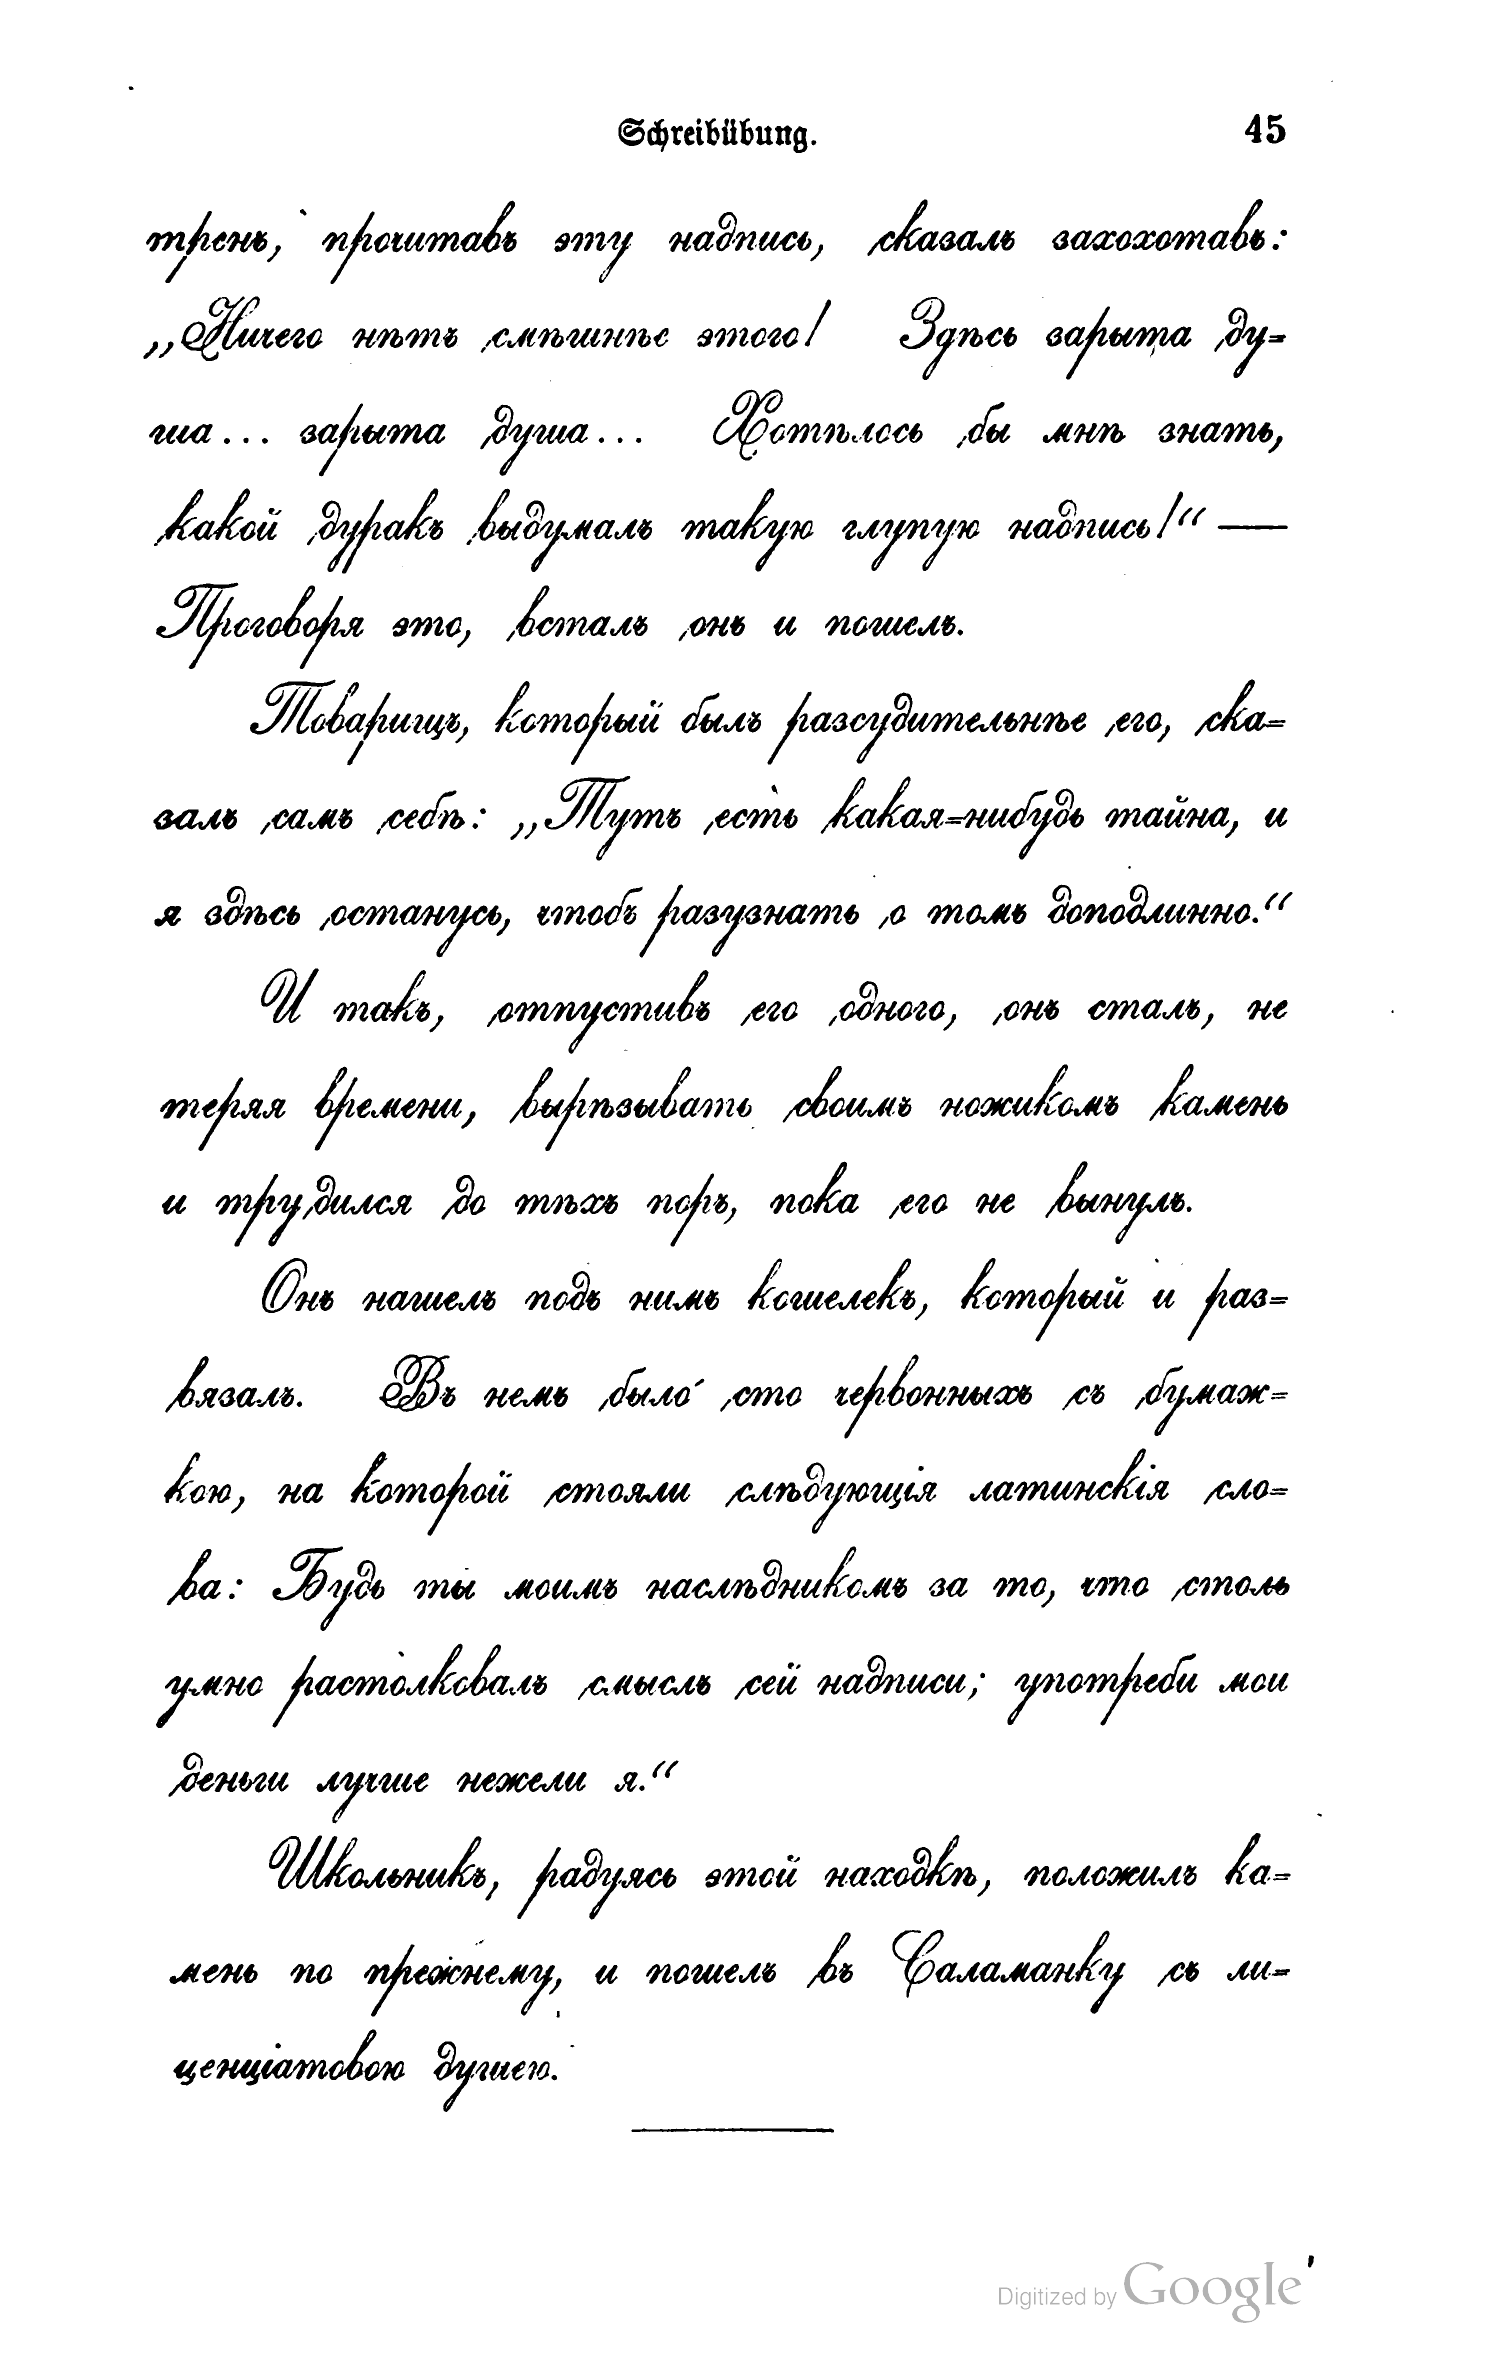 Schreibübung. 45
тренъ, прочитавъ эту надпись, сказалъ захохотавъ:
„Ничего нѣтъ смѣшнѣе этого! Здѣсь зарыта ду=
ша... зарыта душа... Хотѣлось бы мнѣ знать,
какой дуракъ выдумалъ такую глупую надпись!“ —
Проговоря это, всталъ онъ и пошелъ.
Товарищъ, который былъ разсудительнѣе его, ска=
залъ самъ себѣ: „Тутъ есть какая=нибудь тайна, и
я здѣсь останусь, чтобъ разузнать о томъ доподлинно.“
И такъ, отпустивъ его одного, онъ сталъ, не
теряя времени, вырѣзывать своимъ ножикомъ камень
и трудился до тѣхъ поръ, пока его не вынулъ.
Онъ нашелъ подъ нимъ кошелекъ, который и раз=
вязалъ. Въ немъ было сто червонныхъ съ бумаж=
кою, на которой стояли слѣдующія латинскія сло=
ва: Будь ты моимъ наслѣдникомъ за то, что столь
умно растолковалъ смыслъ сей надписи; употреби мои
деньги лучше нежели я.“
Школьникъ, радуясь этой находкѣ, положилъ ка=
мень по прежнему, и пошелъ въ Саламанку съ ли=
ценціатовою душею.
Digitized by Google